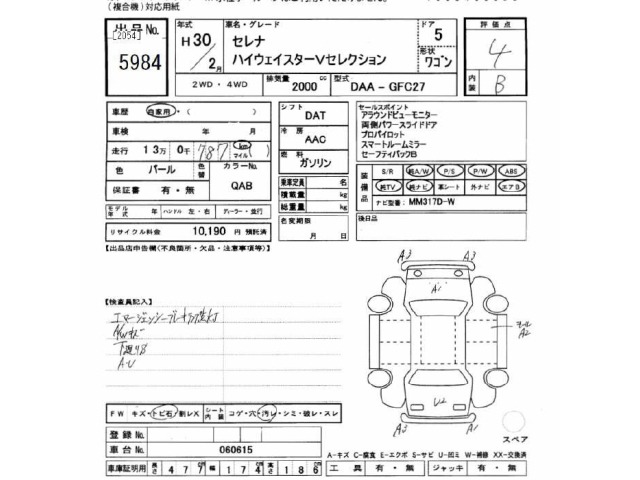 (複合機)対応用紙
出品No.
[2054]
5984
年式
H30
2月
車名・グレード
セレナ
ハイウェイスターVセレクション
ドア
5
形状
ワゴン
2WD・4WD
排気量
2000
cc
型式
DAA - GFC27
評価点
4
内装
B
車歴
自家用・( )
車検
年 月
走行
13万 0千 787
km
マイル
色
パール
色替
カラーNo.
QAB
保証書
有・無
モデル年式
年
ハンドル
左・右
ディーラー・並行
リサイクル料金
10,190 円 預託済
シフト
DAT
冷房
AAC
燃料
ガソリン
乗車定員
名
積載量
kg
総重量
kg
名変期限
月 日
セールスポイント
アラウンドビューモニター
両側パワースライドドア
プロパイロット
スマートルームミラー
セーフティパックB
装備品
S/R
純A/W
P/S
P/W
ABS
純TV
純ナビ
革シート
外ナビ
エアB
ナビ型番:
MM317D-W
後日品
【出品店申告欄(不良箇所・欠品・注意事項等)】
【検査員記入】
A/Wキズ
A・U
FW
キズ・トビ石・割レX
シート内装
コゲ・穴・汚レ・シミ・破レ・スレ
登録No.
車台No.
060615
車庫証明用
長さ
477
幅
174
高さ
186
A3
A3
A1
A2
U2
A3
A1
スペア
A-キズ C-腐食 E-エクボ S-サビ U-凹ミ W-補修 XX-交換済
工具
有・無
ジャッキ
有・無